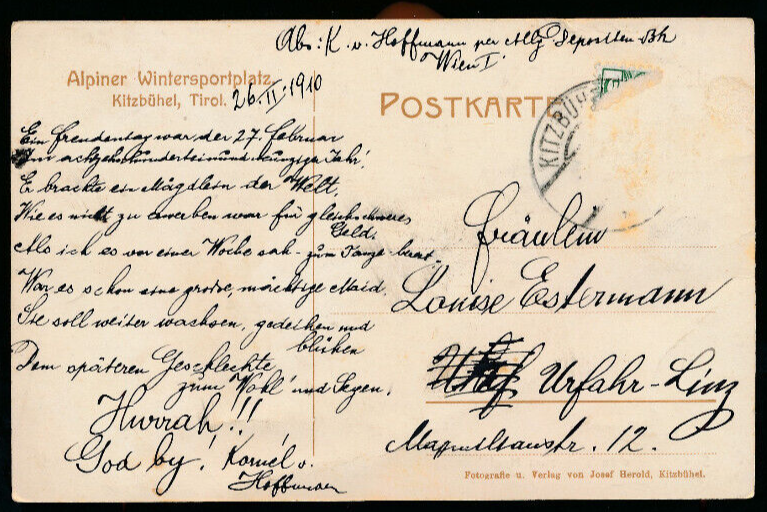 Abs: K. v. Hoffmann per Allg Depositen Bk
Wien I.
Alpiner Wintersportplatz
Kitzbühel, Tirol.
26.II.1910
POSTKARTE
KITZBÜH
Ein Freudentag war der 27. Februar
Im achtzehnhunderteinundneunziger Jahr!
Er brachte ein Mägdlein der Welt,
Wie es nicht zu erwerben war für gleichschweres
Geld.
Als ich es vor einer Woche sah - zum Tanze bereit -
War es schon eine große, mächtige Maid.
Sie soll weiter wachsen, gedeihen und
blühen
Dem späteren Geschlechte
zum Wohl und Segen.
Hurrah!!
God by! Kornél v.
Hoffmann
Fräulein
Louise Estermann
Urfahr-Linz
Maximilianstr. 12.
Fotografie u. Verlag von Josef Herold, Kitzbühel.